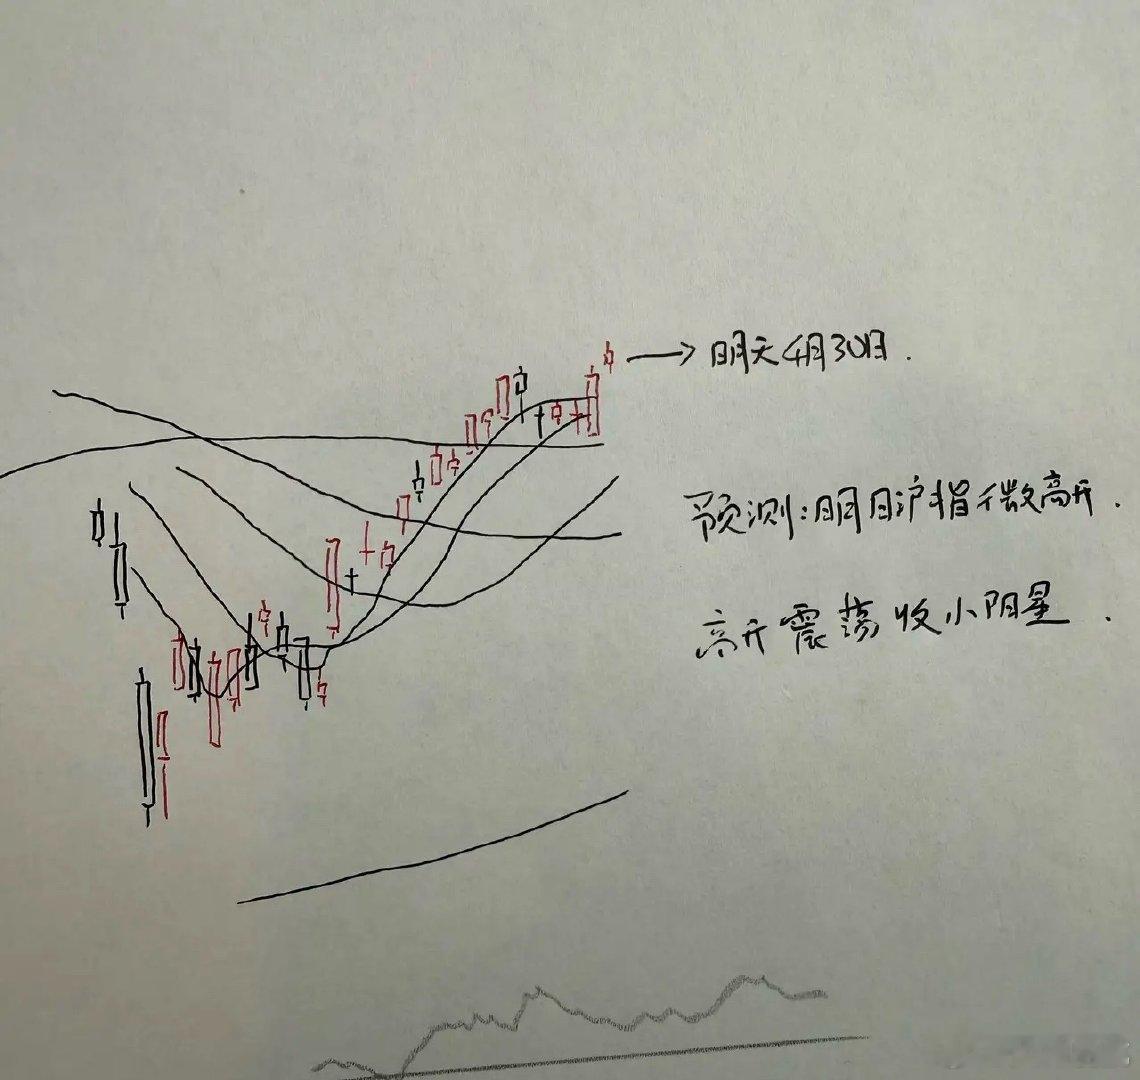 明天4月30日.
预测:明日沪指微高开.
高开震荡收小阳星.